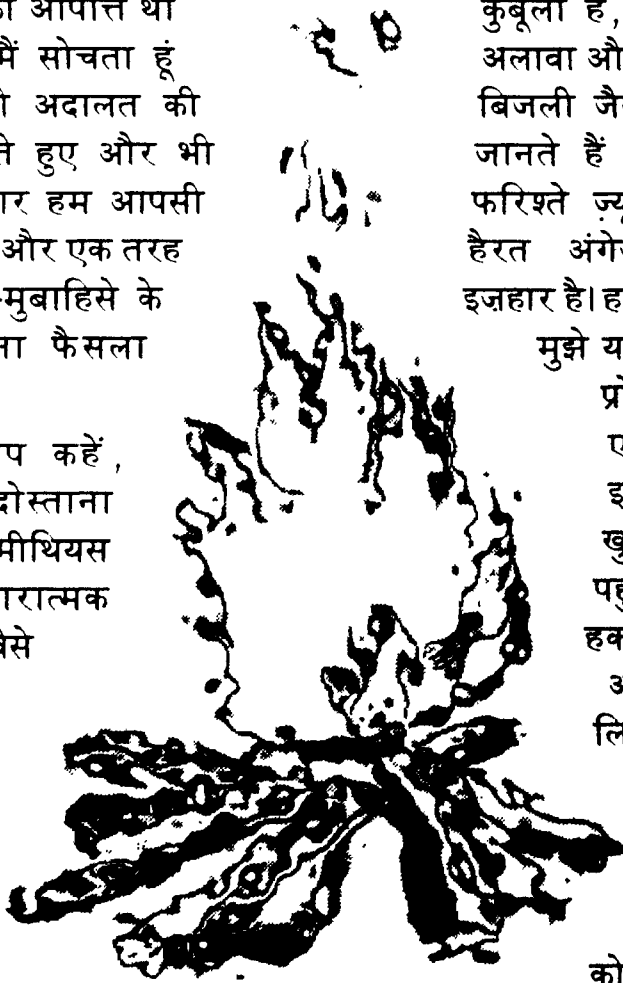 आपत्ति था
मैं सोचता हूं
अदालत की
ते हुए और भी
ार हम आपसी
और एक तरह
-मुबाहिसे के
ना फैसला
प कहें ,
दोस्ताना
मीथियस
ारात्मक
वैसे
कुबूला है,
अलावा औ
बिजली जै
जानते हैं
फरिश्ते ज़्यू
हैरत अंगे
इज़हार है। ह
मुझे य
प्रो
ए
इ
खु
पहु
हक
अ
लि
को